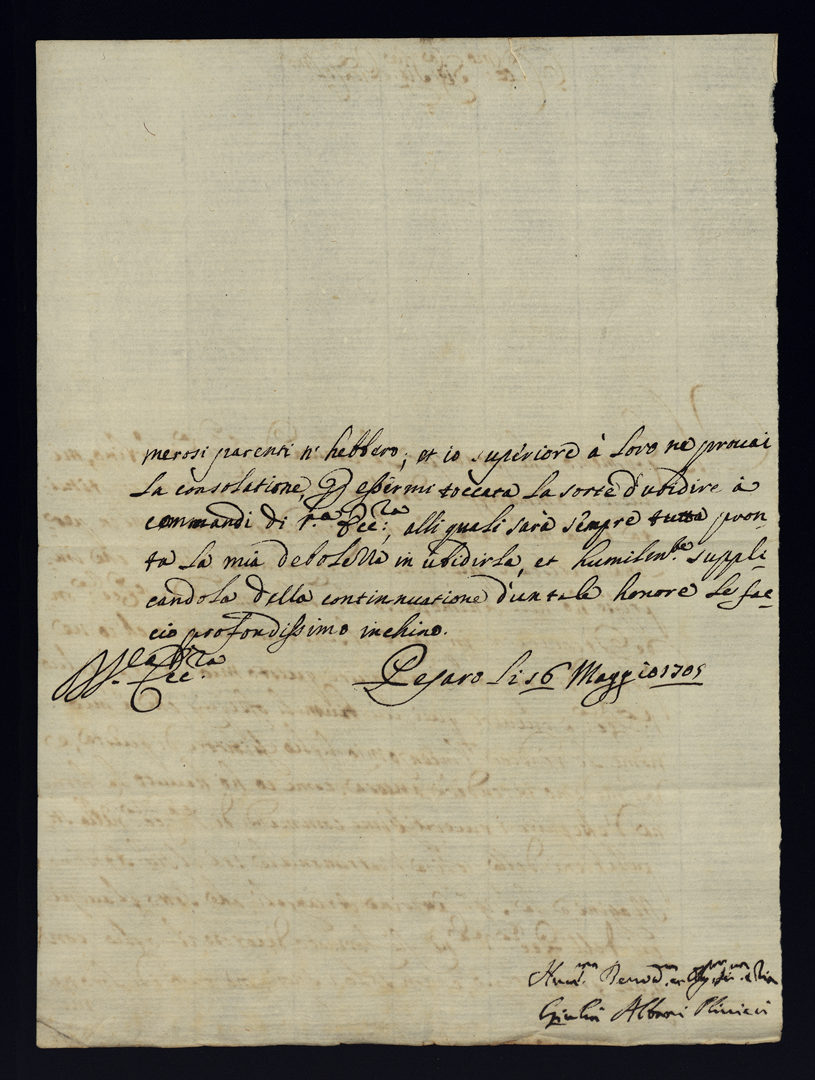 merosi parenti n'hebbero; et io superiore à loro ne prouai
la consolatione, essermi toccata la sorte d'ubidire à
commandi di V.ra Ecc:za, alli quali sarà sempre tutta pron-
ta la mia debolezza in ubidirla, et humilm.te suppli-
candola della continnuatione d'un tale honore le fac-
cio profondissimo inchino.
Ecc.za Pesaro li 16 Maggio 1705
Hum.ma
Giulia Albani Olivieri